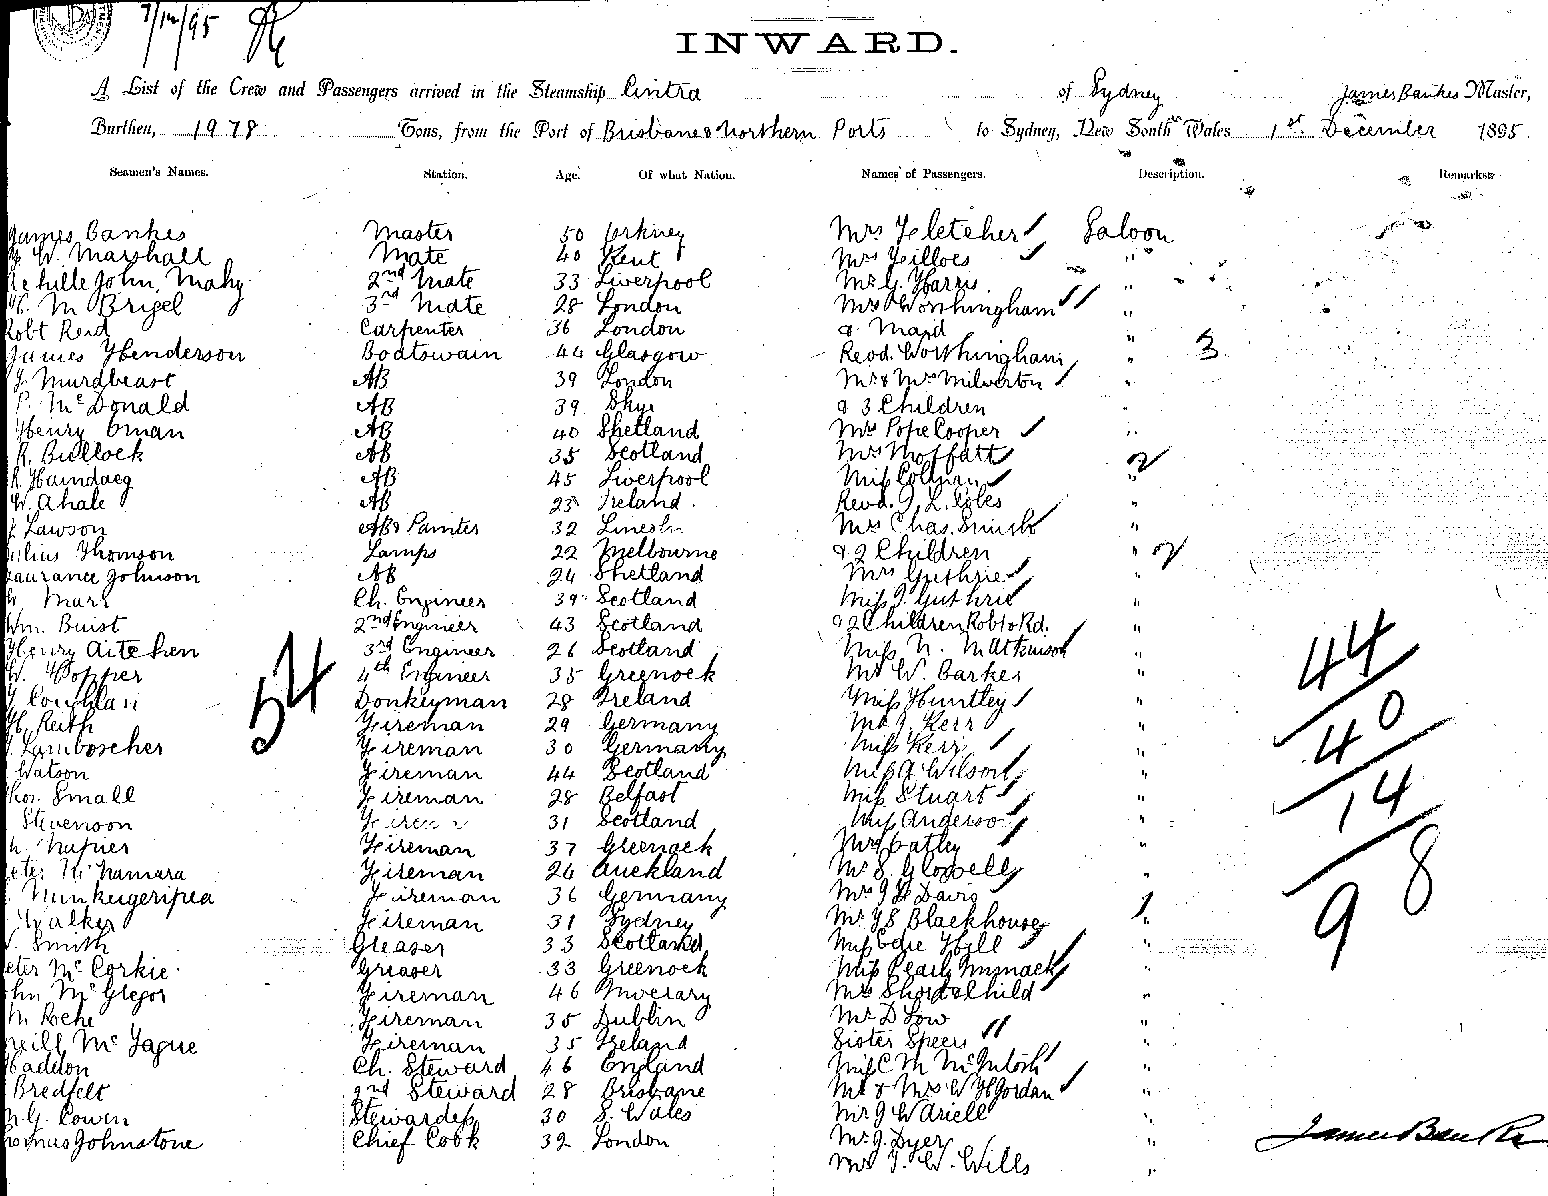 7/12/95
INWARD.
A List of the Crew and Passengers arrived in the Steamship Cintra of Sydney James Bankes Master,
Burthen, 1978 Tons, from the Port of Brisbane & Northern Ports to Sydney, New South Wales 1st December 1895
Seamen's Names. Station. Age. Of what Nation. Names of Passengers. Description. Remarks
James Bankes Master 50 Orkney Mrs Fletcher Saloon
W. Marshall Mate 40 Kent Mrs Filloes "
John, Mahy 2nd Mate 33 Liverpool Mr G. Harris "
M Brigel 3rd Mate 28 London Mrs Worthingham "
Robt Reid Carpenter 36 London & Maid
James Henderson Boatswain 44 Glasgow Revd. Worthingham " 3
J. Murdbeast AB 39 London Mr & Mrs Milverton "
P. McDonald AB 39 Skye & 3 Children "
Henry Oman AB 40 Shetland Mrs Pope Cooper "
R. Bullock AB 35 Scotland Mrs Moffatt 2
R. AB 45 Liverpool Miss Colman "
W. Ahale AB 23 Ireland. Revd. J. L. "
Lawson AB & Painter 32 Lincoln Mrs Chas. Smith "
Julius Thomson Lamps 22 Melbourne & 2 Children " 2
Laurance Johnson AB 24 Shetland Mrs Guthrie "
Marr Ch. Engineer 39 Scotland Miss J. Guthrie "
Wm. Buist 2nd Engineer 43 Scotland & 2 Children Robt & Rd. "
Henry Aitchen 3rd Engineer 26 Scotland Miss N. M Atkinson "
W. Hopper 4th Engineer 35 Greenock Mr W. Barker "
Coughlan Donkeyman 28 Ireland Miss Huntley "
H. Reith Fireman 29 Germany Mr J. Kerr "
Lamboscher Fireman 30 Germany Miss Kerr "
54
Watson Fireman 44 Scotland Miss A Wilson "
Thos. Small Fireman 28 Belfast Miss Stuart "
Stevenson Fireman 31 Scotland Miss Anderson "
Napier Fireman 37 Greenock Mrs Catley "
Peter McNamara Fireman 24 Auckland Mr S. Glowelly "
Fireman 36 Germany Mrs J H Davis 1
Walker Fireman 31 Sydney Mr Y S Blackhouse "
Smith Greaser 33 Scotland Miss Edie Hill "
Peter McCorkie Greaser 33 Greenock Miss Pearly "
John McGregor Fireman 46 Inverary Mrs Short & Child "
M Roche Fireman 35 Dublin Mr D Low "
Neill McFague Fireman 35 Ireland Sister Speers "
Haddon Ch. Steward 46 England Miss C M McIntosh "
Bredfelt 2nd Steward 28 Brisbane Mr & Mrs W H Jordan "
Cowen Stewardess 30 S. Wales Mr J W Ariell "
Thomas Johnstone Chief Cook 32 London Mr J. Dyer "
Mr J. W. Wills "
44
40
14
98
James Bankes